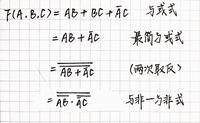 F(A.B.C) = AB + BC + A̅C 与或式
= AB + A̅C 最简与或式
= \overline{\overline{AB + A̅C}} (两次取反)
= \overline{\overline{AB} · \overline{A̅C}} 与非—与非式